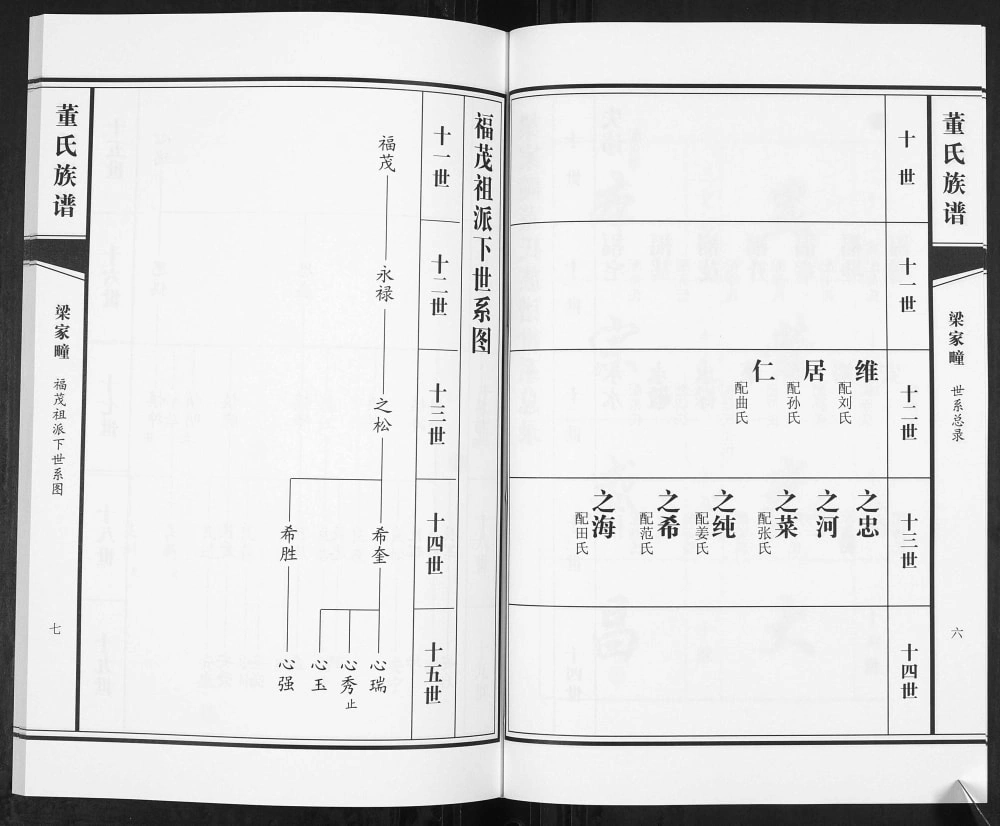 董氏族谱
梁家疃
世系总录
六
十世
十一世
十二世
维
配刘氏
居
配孙氏
仁
配曲氏
十三世
之忠
之河
之菜
配张氏
之纯
配姜氏
之希
配范氏
之海
配田氏
十四世
福茂祖派下世系图
十一世
福茂
十二世
永禄
十三世
之松
十四世
希奎
希胜
十五世
心瑞
心秀
止
心玉
心强
董氏族谱
梁家疃
福茂祖派下世系图
七